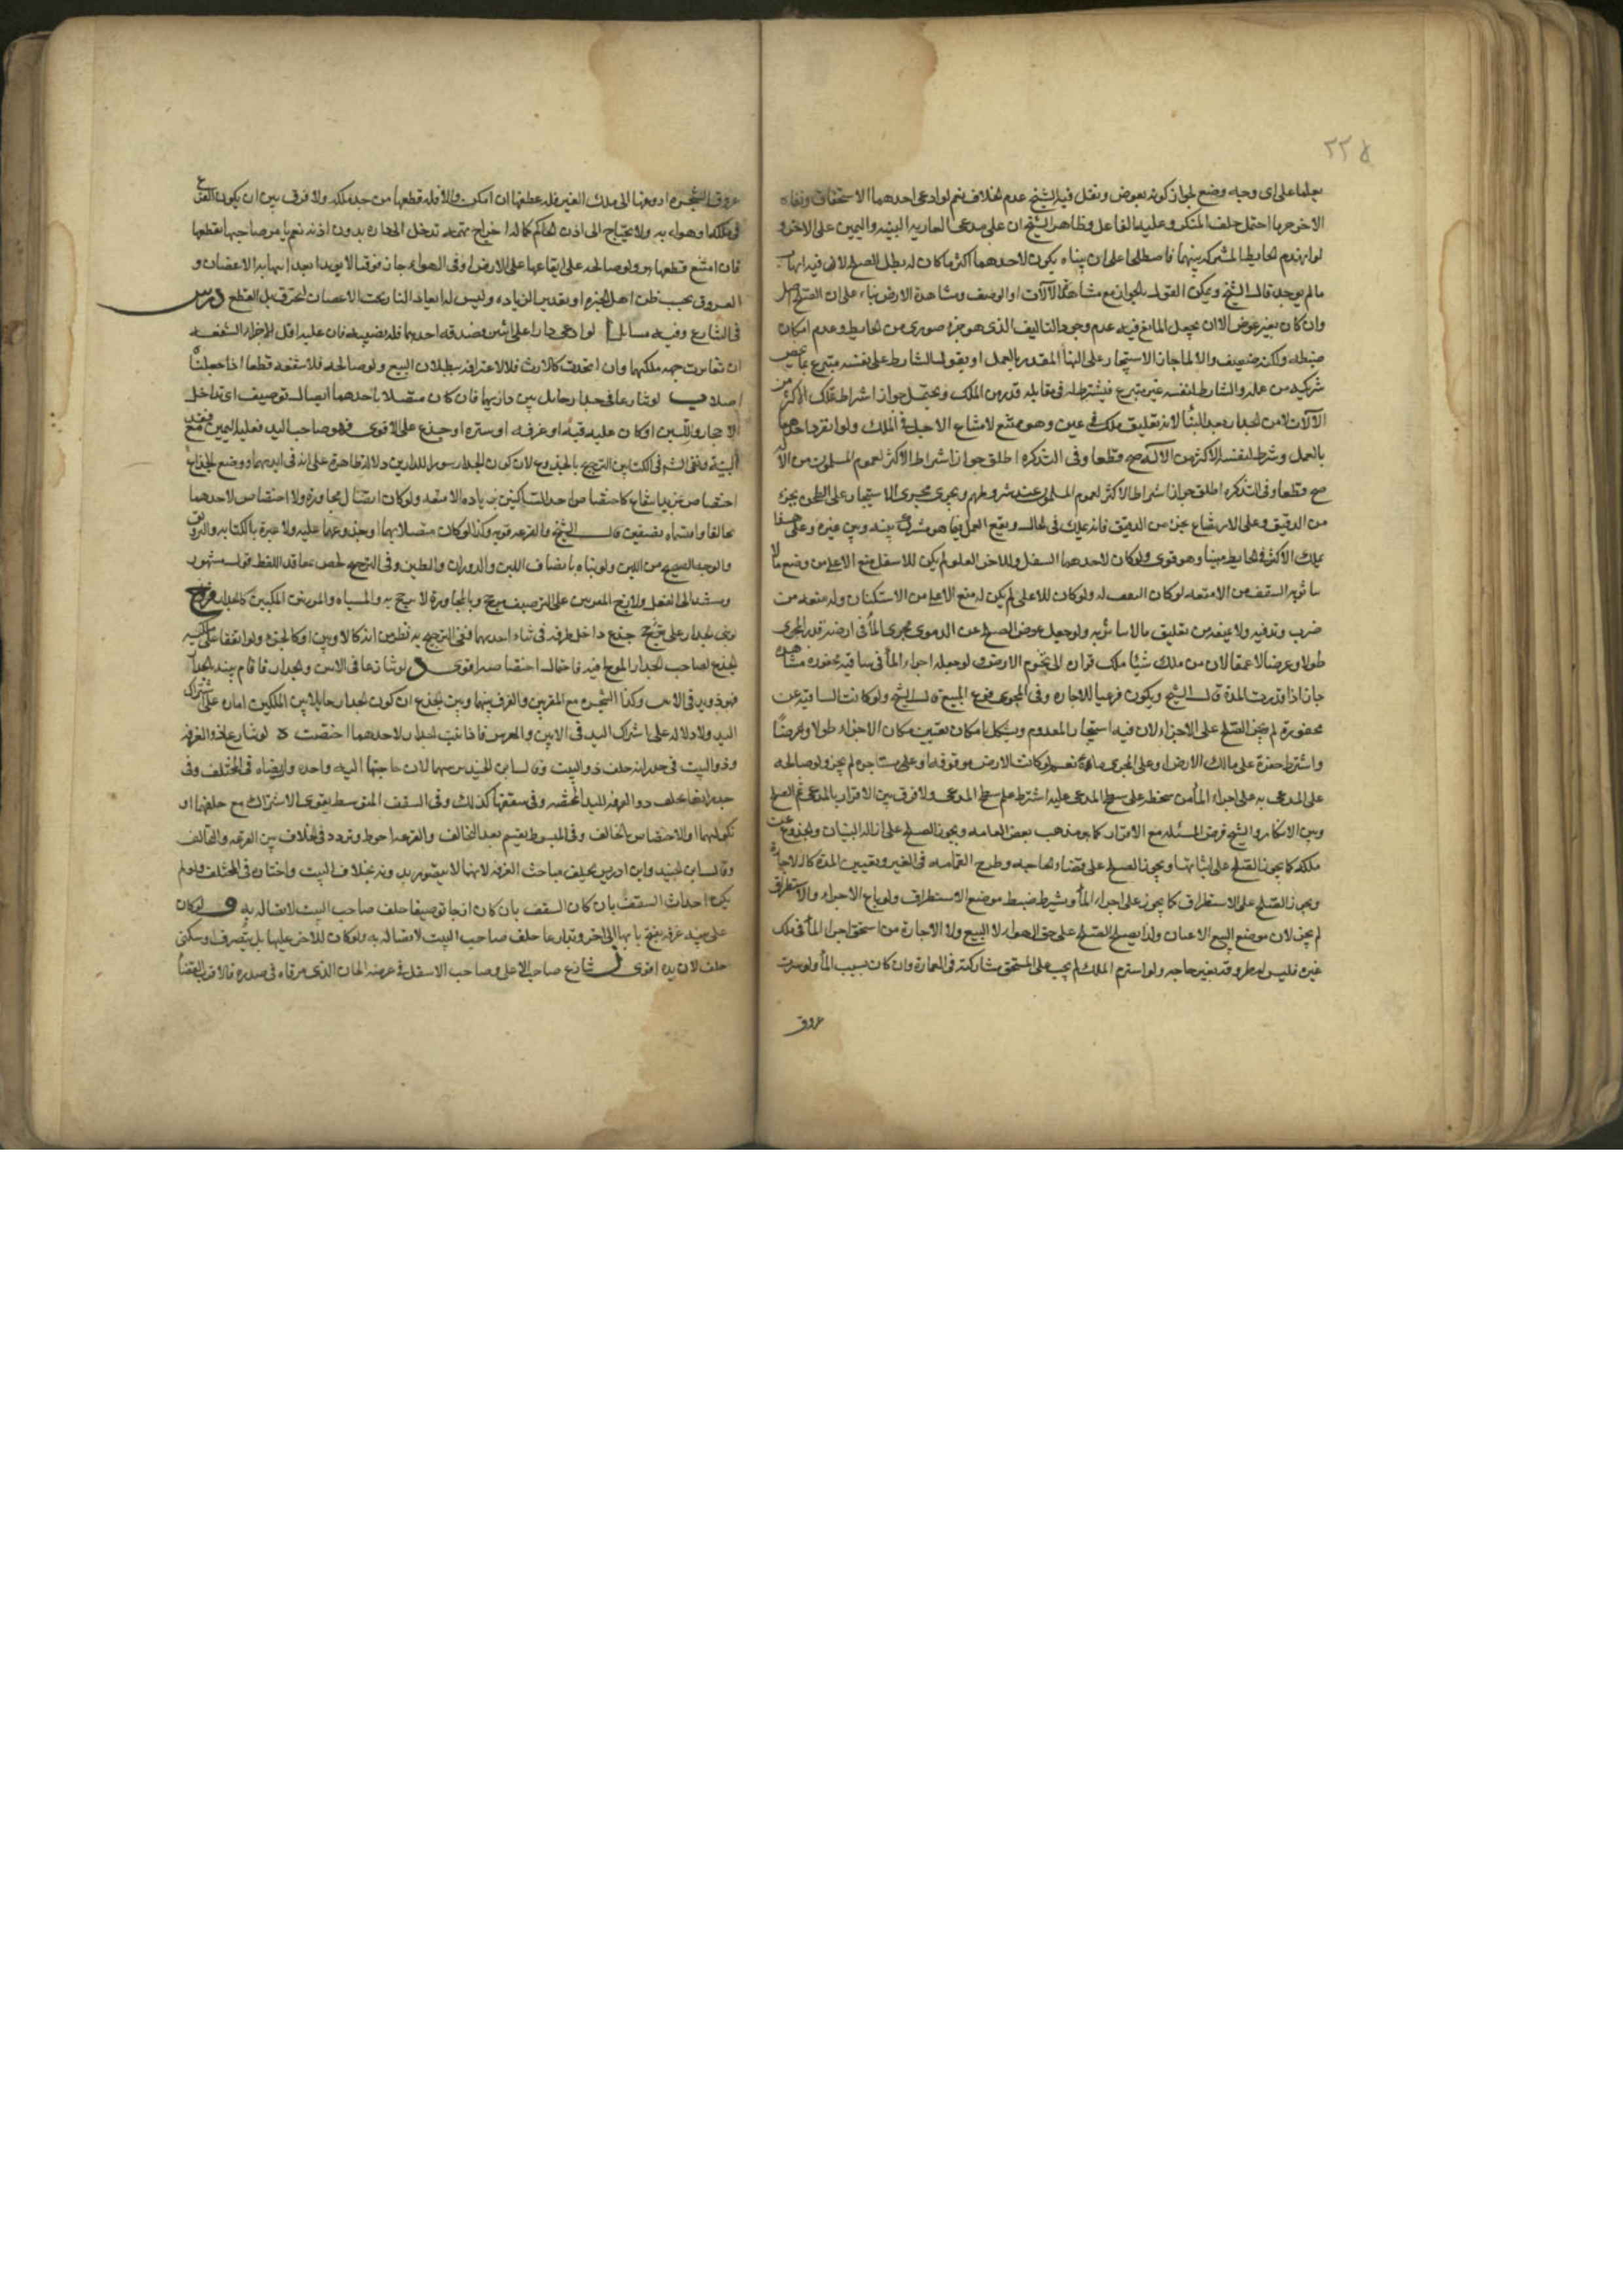 ٢٢٥
على اى وجه وضع لجواز كونه بعوض ونقل فيه الشيخ عدم الخلاف نعم لو ادعى احدهما الاستحقاق ونفاه
الاخر حرما احتمل حلف المنكر وعليه الفاعل وظاهر الشيخ ان على مدعى العاريه البينه واليمين على الاخر و
لو انهدم الحايط المشترك بينهما فاصطلحا على ان يبنياه ويكون لاحدهما اكثر مما كان له بطل الصلح لانه فيه
مالم يوجد قال الشيخ ويمكن القول بالجواز مع مشاهدة الآلات او الوصف ومشاهدة الارض بناء على ان الصلح اصل
وان كان بغير عوض الا ان يجعل المانع فيه عدم وجود التاليف الذى هو جزء صورى من الحايط وعدم امكان
ضبطه ولكنه ضعيف والا لما جاز الاستيجار على البناء المقدر بالعمل او يقول الشارط على نفسه متبرع بما يخص
شريكه من عمله والشارط لنفسه غير متبرع فيشترط له فى مقابله قدر من الملك ويحتمل جواز اشتراط تملك الاكثر من
الآلات لا من الجدار بعد البناء لانه تعليق ملك فى عين وهو ممتنع لامتناع الاجل فى الملك ولو انفرد احدهما
بالعمل وشرط لنفسه الاكثر من الآلة صح قطعا وفى التذكره اطلق جواز اشتراط الاكثر لعموم المسلمون من الآله
صح قطعا وفى التذكره اطلق جواز اشتراط الاكثر لعموم المسلمون عند شروطهم ويجرى مجرى الاستيجار على الطحن بجزء
من الدقيق وعلى الارضاع بجزء من الدقيق فانه يملك فى الحال ويقع العمل فيما هو مشترك بينه وبين غيره وعلى هذا
يملك الاكثر فى الحايط مبنيا وهو قوى ولو كان لاحدهما السفل وللاخر العلو لم يكن للاسفل منع الاعلى من وضع مالا
يتأثر به السقف من الامتعه لو كان السقف له ولو كان للاعلى لم يكن له منع الاسفل من الاستكنان وله منعه من
ضرب وتد فيه ولا يمنعه من تعليق ما لا يتأثر به ولو جعل عوض الصلح عن الدعوى مجرى الماء فى ارضه قدر المجرى
طولا وعرضا لا عمقا لان من ملك شيئا ملك قراره الى تخوم الارض ولو جعله اجراء الماء فى ساقية محفوره مشاهده
جاز اذا قدرت المدة قال الشيخ ويكون فرعيا للاجاره وفى المجرى فرع المبيع قال الشيخ ولو كانت الساقيه غير
محفورة لم يجز الصلح على الاجراء لان فيه استيجار المعدوم ويشكل بامكان تعيين مكان الاجراء طولا وعرضا
واشترط حفره على مالك الارض او على المجرى مائه نعم لو كانت الارض موقوفه او على مستاجره لم يجز ولو صالحه
على المدعى به على اجراء الماء من سطحه على سطح المدعى عليه اشترط علم سطح المدعى ولا فرق بين الاقرار بالمدعى ثم الصلح
وبين الانكار والشيخ فرض المسئله مع الاقرار كما هو مذهب بعض العامه ويجوز الصلح على ازالة البنيان والجذوع عن
ملكه كما يجوز الصلح على اثباتها ويجوز الصلح على قضاء الحاجه وطرح القمامه فى الغير وتعيين المدة كالاجارة
ويجوز الصلح على الاستطراق كما يجوز على اجراء الماء ويشترط ضبط موضع الاستطراق ولو باع الاجراء والاستطراق
لم يجز لان موضع البيع الاعيان ولذا يصلح الصلح على حق الهواء لا البيع ولا الاجارة ومن استحق اجراء الماء فى ملك
غيره فليس له طروقه بغير حاجه ولو استرم الملك لم يجب على المستحق مشاركته فى العمارة وان كان بسبب الماء ولو سرت
عروق
عروق الشجره او فروعها الى ملك الغير فله عطفها ان امكن والا فله قطعها من حد ملكه ولا فرق بين ان يكون الفرع
فى ملكه او هوائه ولا يحتاج الى اذن الحاكم كما له اخراج بهيمه تدخل الى داره بدون اذنه نعم يامر صاحبها بقطعها
فان امتنع قطعها هو ولو صالحه على ابقاعها على الارض او فى الهواء جاز
العروق بحسب ظن اهل الخبره او بقدير الزياده وليس له ايقاد النار تحت الاغصان لتحترق بل القطع درس
فى التنازع وفيه مسائل ا لو ادعى دارا على اثنين فصدقه احدهما فله نصيبه فان صالحه على اقل فللاخر الشفعه
ان تغايرت جهه ملكهما وان اتحدت كالارث فلا لاعترافه ببطلان البيع ولو صالحه فلا شفعه قطعا اذا جعلناه
اصلا ب لو تنازعا فى جدار حايل بين داريهما فان كان متصلا باحدهما اتصال توصيف اى تداخل
الاحجار واللبن او كان عليه قبه او غرفه او ستره او جذع على الاقوى فهو صاحب اليد فعليه اليمين مع فقد
البينة ونفى الشيخ فى الكتابين الترجيح بالجذوع لان كون الجدار سورا للدارين دلاله ظاهرة على انه فى ايديهما ووضع الجذع
اختصاص بمزيد انتفاع كاختصاص احد الساكنين بزياده الامتعه ولو كان اتصال مجاورة ولا اختصاص لاحدهما
تحالفا واقتسماه نصفين قال الشيخ والقرعه قويه وكذا لو كان متصلا بهما او جذوعهما عليه ولا عبرة بالكتابه والتزويق
والوجه الصحيح من اللبن ولو بنياه بانصاف اللبن والدوران والطين وفى الترجيح بالخص بمعاقد القمط قول مشهور
لجذع لصاحب الجدار الموضوع فيه فاحتمال اختصاصه اقوى د لو تنازعا فى الاس والجدار قائم بينه الجدار
فهو ذو يد فى الاس وكذا الشجره مع المقرين والفرق بينها وبين الجذع ان كون الجدار حايلا بين الملكين اماره على اشتراك
اليد ولا دلاله على اشتراك اليد فى الاس والغرس فاذا ثبت الجدار لاحدهما اختصت ه لو تنازع ذو الغرفه
وذو البيت فى جدرانه حلف ذو البيت وقال ابن الجنيد هو بينهما لان حاجتهما اليه واحده وارتضاه فى المختلف وفى
جدرانها يحلف ذو الغرفه لليد المختصه وفى سقفها كذلك وفى السقف المتوسط يقوى الاشتراك مع حلفهما او
نكولهما والاختصاص بالحالف وفى المبسوط يقسم بعد التحالف والقرعه احوط وتردد فى الخلاف بين القرعه والتحالف
وقال ابن الجنيد وابن ادريس يحلف صاحب الغرفه لانها لا تتصور بدونه بخلاف البيت واختاره فى المختلف ولو لم
يمكن احداث السقف بان كان السقف بان كان ازجا توصيفا حلف صاحب البيت لاتصاله به و لو كان
على بيته غرفه يفتح بابها الى اخر وتداعيا حلف صاحب البيت لاتصاله به ولو كان للاخر عليها بل يتصرف او سكنى
حلف لان يده اقوى ز تنازع صاحب الاعلى وصاحب الاسفل فى عرصه الخان الذى مرقاه فى صدره فالاقرب القضاء